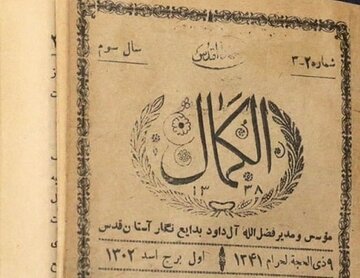 شماره ۲-۳
سال سوم
الکمال
۱۳۳۸
مؤسس و مدیر فضل الله آل داود بدایع نگار آستان قدس
۹ ذی الحجة الحرام ۱۳۴۱ اول برج اسد ۱۳۰۲